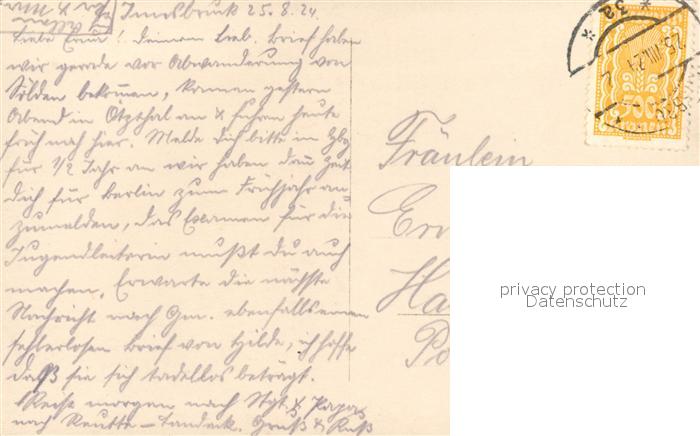 Innsbruck 25.8.24.
Liebe Erna! Deinen lieb. Brief haben
wir gerade vor Abwanderung von
Sölden bekommen, kamen gestern
Abend in Ötzthal an & fuhren heute
früh nach hier. Melde Dich bitte in
für 1/2 Jahr an wir haben dann Zeit
Dich für Berlin zum Frühjahr an
zumelden, das Examen für die
Jugendleiterin mußt Du auch
machen. Erwarte die nächste
Nachricht nach Gm. ebenfalls einen
fehlerlosen Brief von Hilde, ich hoffe
daß sie sich tadellos beträgt.
Reise morgen nach Stgt. & Papa
nach Reutte – Landeck. Gruß & Kuß
Fräulein
Er
Ha
Po
500
privacy protection
Datenschutz